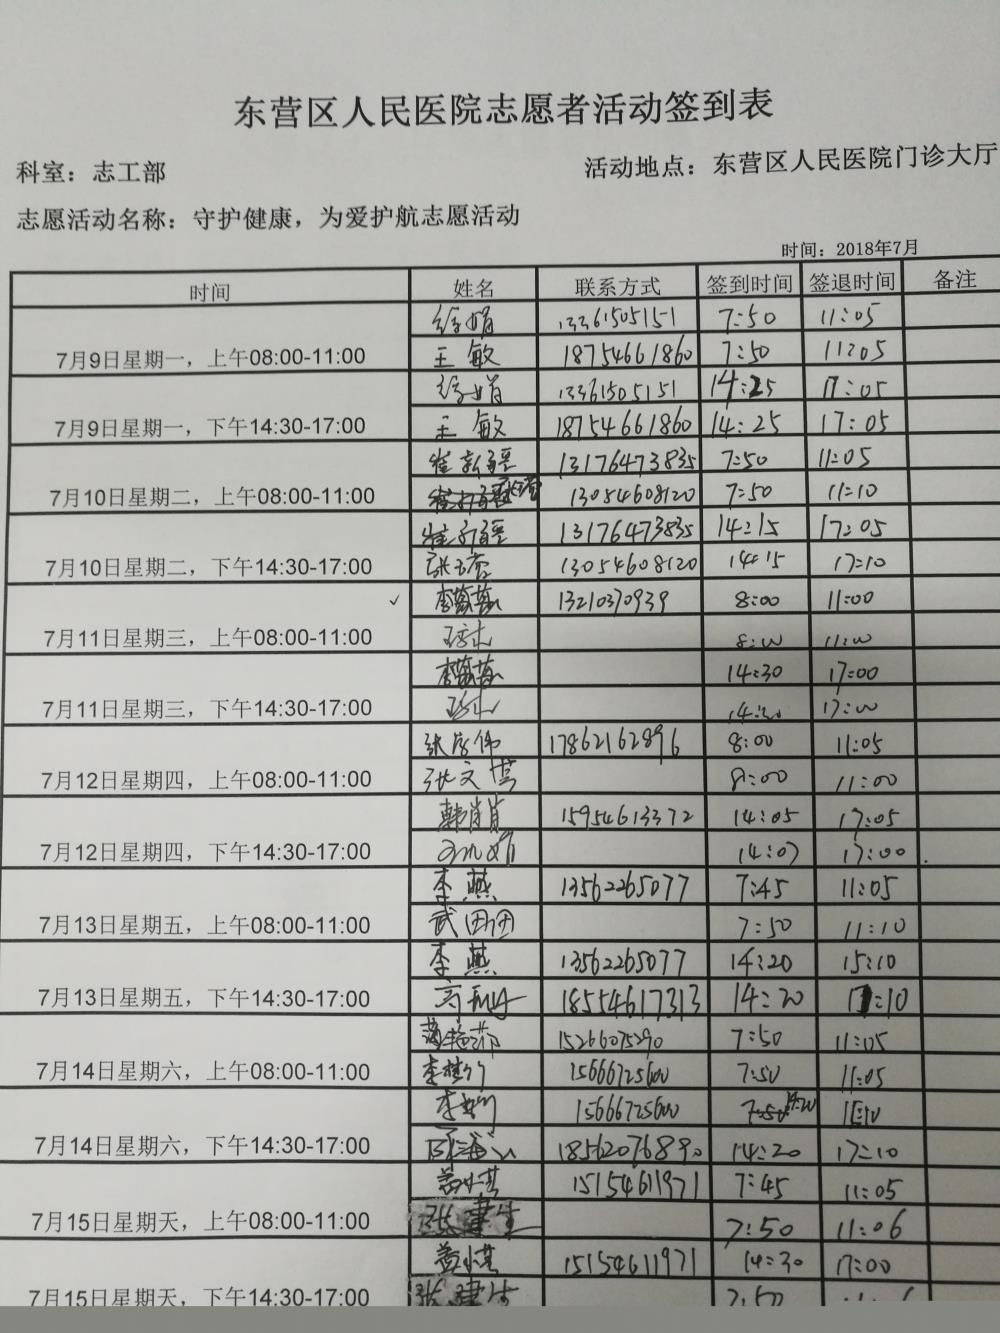 东营区人民医院志愿者活动签到表
科室：志工部 活动地点：东营区人民医院门诊大厅
志愿活动名称：守护健康，为爱护航志愿活动
时间：2018年7月
时间 姓名 联系方式 签到时间 签退时间 备注
7月9日星期一，上午08:00-11:00
徐娟 13361505151 7:50 11:05
王敏 18754661860 7:50 11:05
7月9日星期一，下午14:30-17:00
徐娟 13361505151 14:25 17:05
王敏 18754661860 14:25 17:05
7月10日星期二，上午08:00-11:00
崔新疆 13176473835 7:50 11:05
13054608120 7:50 11:10
7月10日星期二，下午14:30-17:00
崔新疆 13176473835 14:15 17:05
13054608120 14:15 17:10
7月11日星期三，上午08:00-11:00
✓ 13210370939 8:00 11:00
8:00 11:00
7月11日星期三，下午14:30-17:00
14:30 17:00
17:00
7月12日星期四，上午08:00-11:00
17862162896 8:00 11:05
张文 8:00 11:00
7月12日星期四，下午14:30-17:00
韩肖肖 15954613372 14:05 17:05
17:00
7月13日星期五，上午08:00-11:00
李燕 13562265077 7:45 11:05
武团团 7:50 11:10
7月13日星期五，下午14:30-17:00
李燕 13562265077 14:20 15:10
18554617313 14:20 17:10
7月14日星期六，上午08:00-11:00
15266075290 7:50 11:05
15666725600 7:50 11:05
7月14日星期六，下午14:30-17:00
15666725600
14:20 17:10
7月15日星期天，上午08:00-11:00
15154611971 7:45 11:05
张建生 7:50 11:06
7月15日星期天，下午14:30-17:00
15154611971 14:30 17:00
张建生 7:50